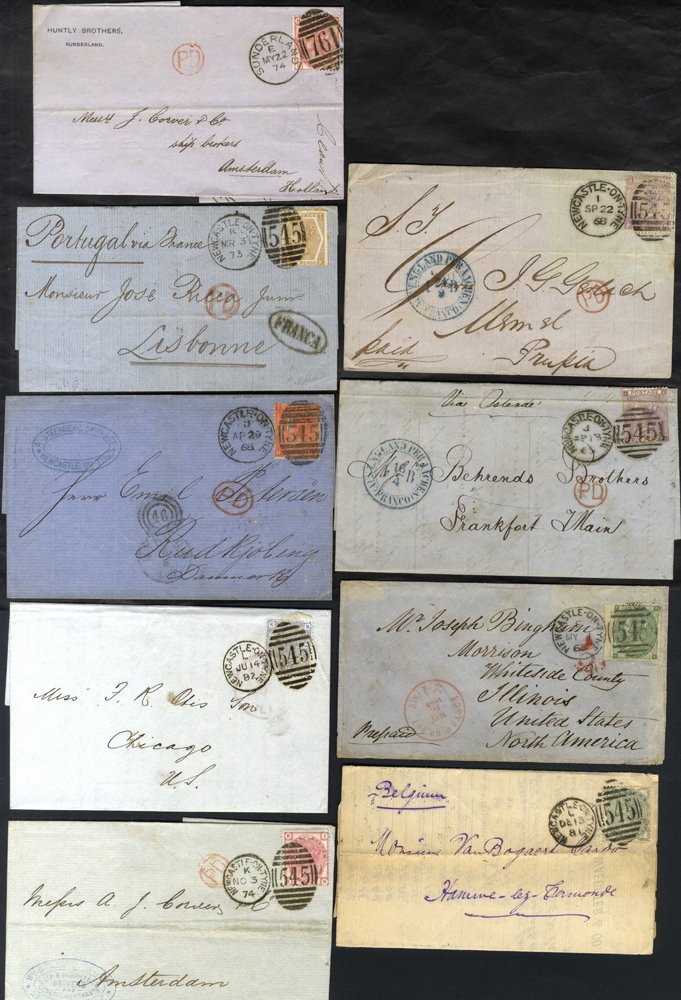 HUNTLY BROTHERS,
SUNDERLAND.
PD
SUNDERLAND
E
MY 22
74
761
Messrs J. Corver & Co
ship brokers
Amsterdam
Holland
Portugal via France
NEWCASTLE-ON-TYNE
K
MR 3
73
545
Monsieur José Ricca Junr
PD
FRANCA
Lisbonne
NEWCASTLE-ON-TYNE
J
AP 29
68
545
NEWCASTLE-ON-TYNE
Herr Emil
PD
46
Rudkjöbing
Danmark
NEWCASTLE-ON-TYNE
L
JU 14
82
545
Miss F. R. Otis
Chicago
U.S.
PD
NEWCASTLE-ON-TYNE
K
NO 3
74
545
Messrs A. J. Corver
Amsterdam
NEWCASTLE-ON-TYNE
1
SP 22
68
545
S. T.
ENGLAND PER AACHEN
FRANCO
J G
PD
Memel
paid
Prussia
Via Ostende
NEWCASTLE-ON-TYNE
J
AP 13
POSTAGE
545
ENGLAND PER AACHEN
16
4
FRANCO
Behrends Brothers
PD
Frankfort Main
Mr Joseph Bingham
NEWCASTLE-ON-TYNE
MY
545
Morrison
Whiteside County
Illinois
United States
Prepaid
North America
Belgium
NEWCASTLE-ON-TYNE
L
DE 13
81
545
Monsieur Van Bogaert
Hamme-lez-Termonde